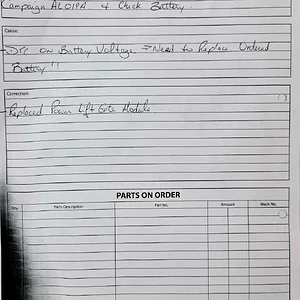 Campaign ALOIPA & Check Battery
Cause:
- DTC on Battery Voltage → Need to Replace Ordered
Battery !!
Correction:
- Replaced Power Lift Gate Module
PARTS ON ORDER
Qty. Parts Description Part No. Amount Mech No.